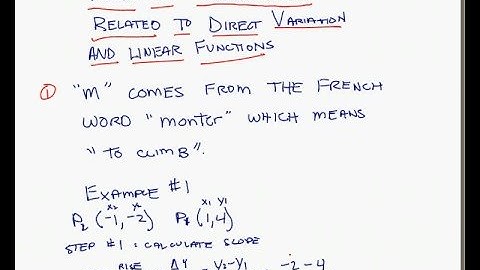 RELATED TO DIRECT VARIATION
AND LINEAR FUNCTIONS
① "M" COMES FROM THE FRENCH
WORD "monter" WHICH MEANS
"TO CLIMB".
EXAMPLE #1
x₂ y₂ x₁ y₁
P₂ (-1,-2) P₁ (1,4)
STEP #1: CALCULATE SLOPE
RISE ΔY Y₂-Y₁ -2-4